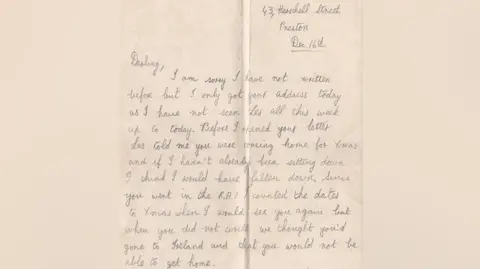 43, Herschell Street
Preston
Dec. 16th
Darling,
I am sorry I have not written
before but I only got your address today
as I have not seen Les all this week
up to today. Before I opened your letter
Les told me you were coming home for Xmas
and if I hadn't already been sitting down
I think I would have fallen down, since
you went in the R.A.F I counted the dates
to Xmas when I would see you again but
when you did not write we thought you'd
gone to Ireland and that you would not be
able to get home.